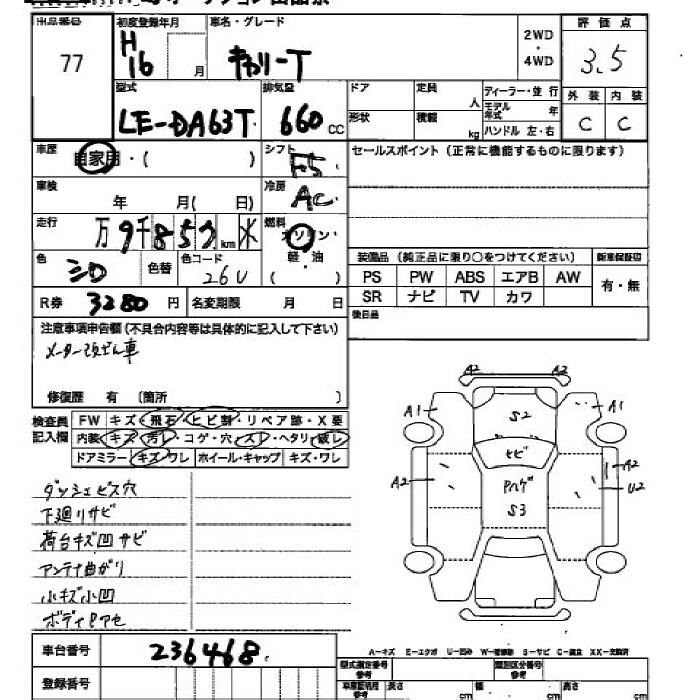 出品番号
77
初度登録年月
H
16 月
車名・グレード
キャリーT
2WD
・
4WD
評価点
3.5
型式
LE-DA63T
排気量
660 cc
ドア
形状
定員
人
積載
kg
ディーラー・並行
モデル
年式 年
ハンドル 左・右
外装 内装
C C
車歴
自家用・( )
シフト
F5
セールスポイント (正常に機能するものに限ります)
車検
年 月( 日)
冷房
AC
走行
万9千857km
燃料
ガソリン
軽・油
( )
色
シロ
色替
色コード
26U
装備品 (純正品に限り○をつけてください)
新車保証書
PS PW ABS エアB AW
SR ナビ TV カワ
有・無
R券 3280 円
名変期限 月 日
後日品
注意事項申告欄(不具合内容等は具体的に記入して下さい)
メーター改ざん車
修復歴 有 (箇所 )
検査員
記入欄
FW キズ・飛石・ヒビ割・リペア跡・X要
内装 キズ・汚レ・コゲ・穴・スレ・ヘタリ・破レ
ドアミラー キズ・ワレ ホイール・キャップ キズ・ワレ
ダッシュビス穴
下廻りサビ
荷台キズ凹サビ
アンテナ曲がり
小キズ小凹
ボディアセ
A2 A2
A1 S2 A1
ヒビ
A2 A2
Pハゲ U2
S3
車台番号
236468
登録番号
A－キズ E－エクボ U－凹み W－補修跡 S－サビ C－腐食 XX－交換済
型式指定番号
参考
類別区分番号
参考
車庫証明用
参考
長さ cm
幅 cm
高さ cm